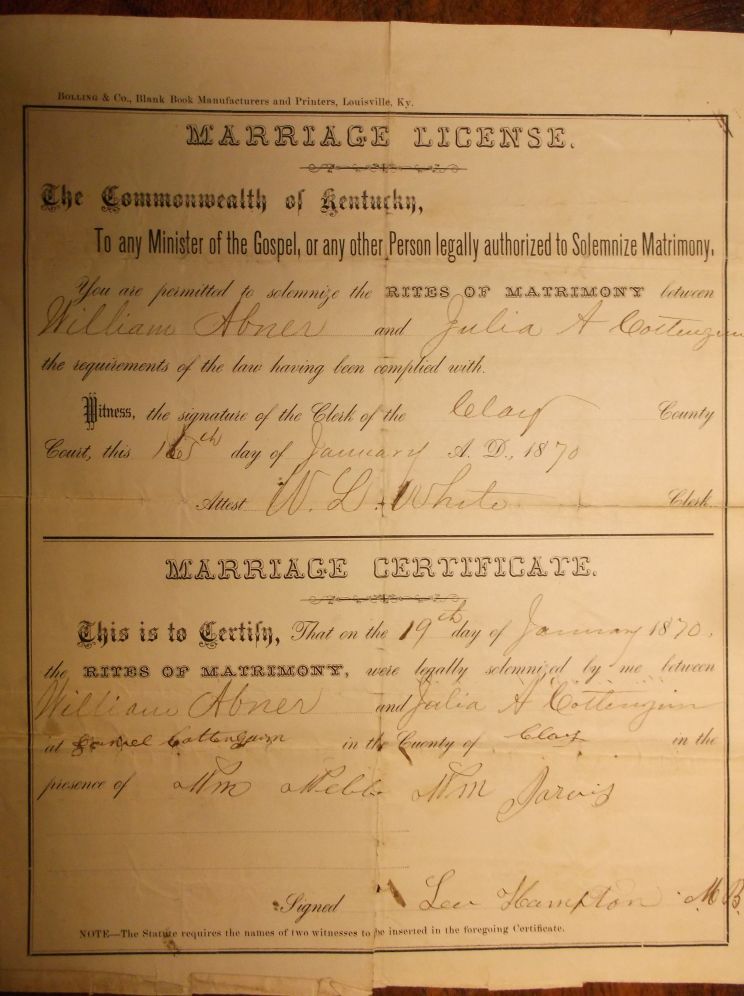 BOLLING & CO., Blank Book Manufacturers and Printers, Louisville, Ky.
MARRIAGE LICENSE.
The Commonwealth of Kentucky,
To any Minister of the Gospel, or any other Person legally authorized to Solemnize Matrimony.
You are permitted to solemnize the RITES OF MATRIMONY between
William Abner and Julia A Cottengim
the requirements of the law having been complied with.
Witness, the signature of the Clerk of the Clay County
Court, this 15th day of January A. D., 1870
Attest W. L. White Clerk
MARRIAGE CERTIFICATE.
This is to Certify, That on the 19th day of January 1870.
the RITES OF MATRIMONY, were legally solemnized by me between
William Abner and Julia A Cottengim
at Cottengim in the County of Clay in the
presence of Wm Webb Wm Jarvis
Signed Lew Hampton
NOTE—The Statute requires the names of two witnesses to be inserted in the foregoing Certificate.